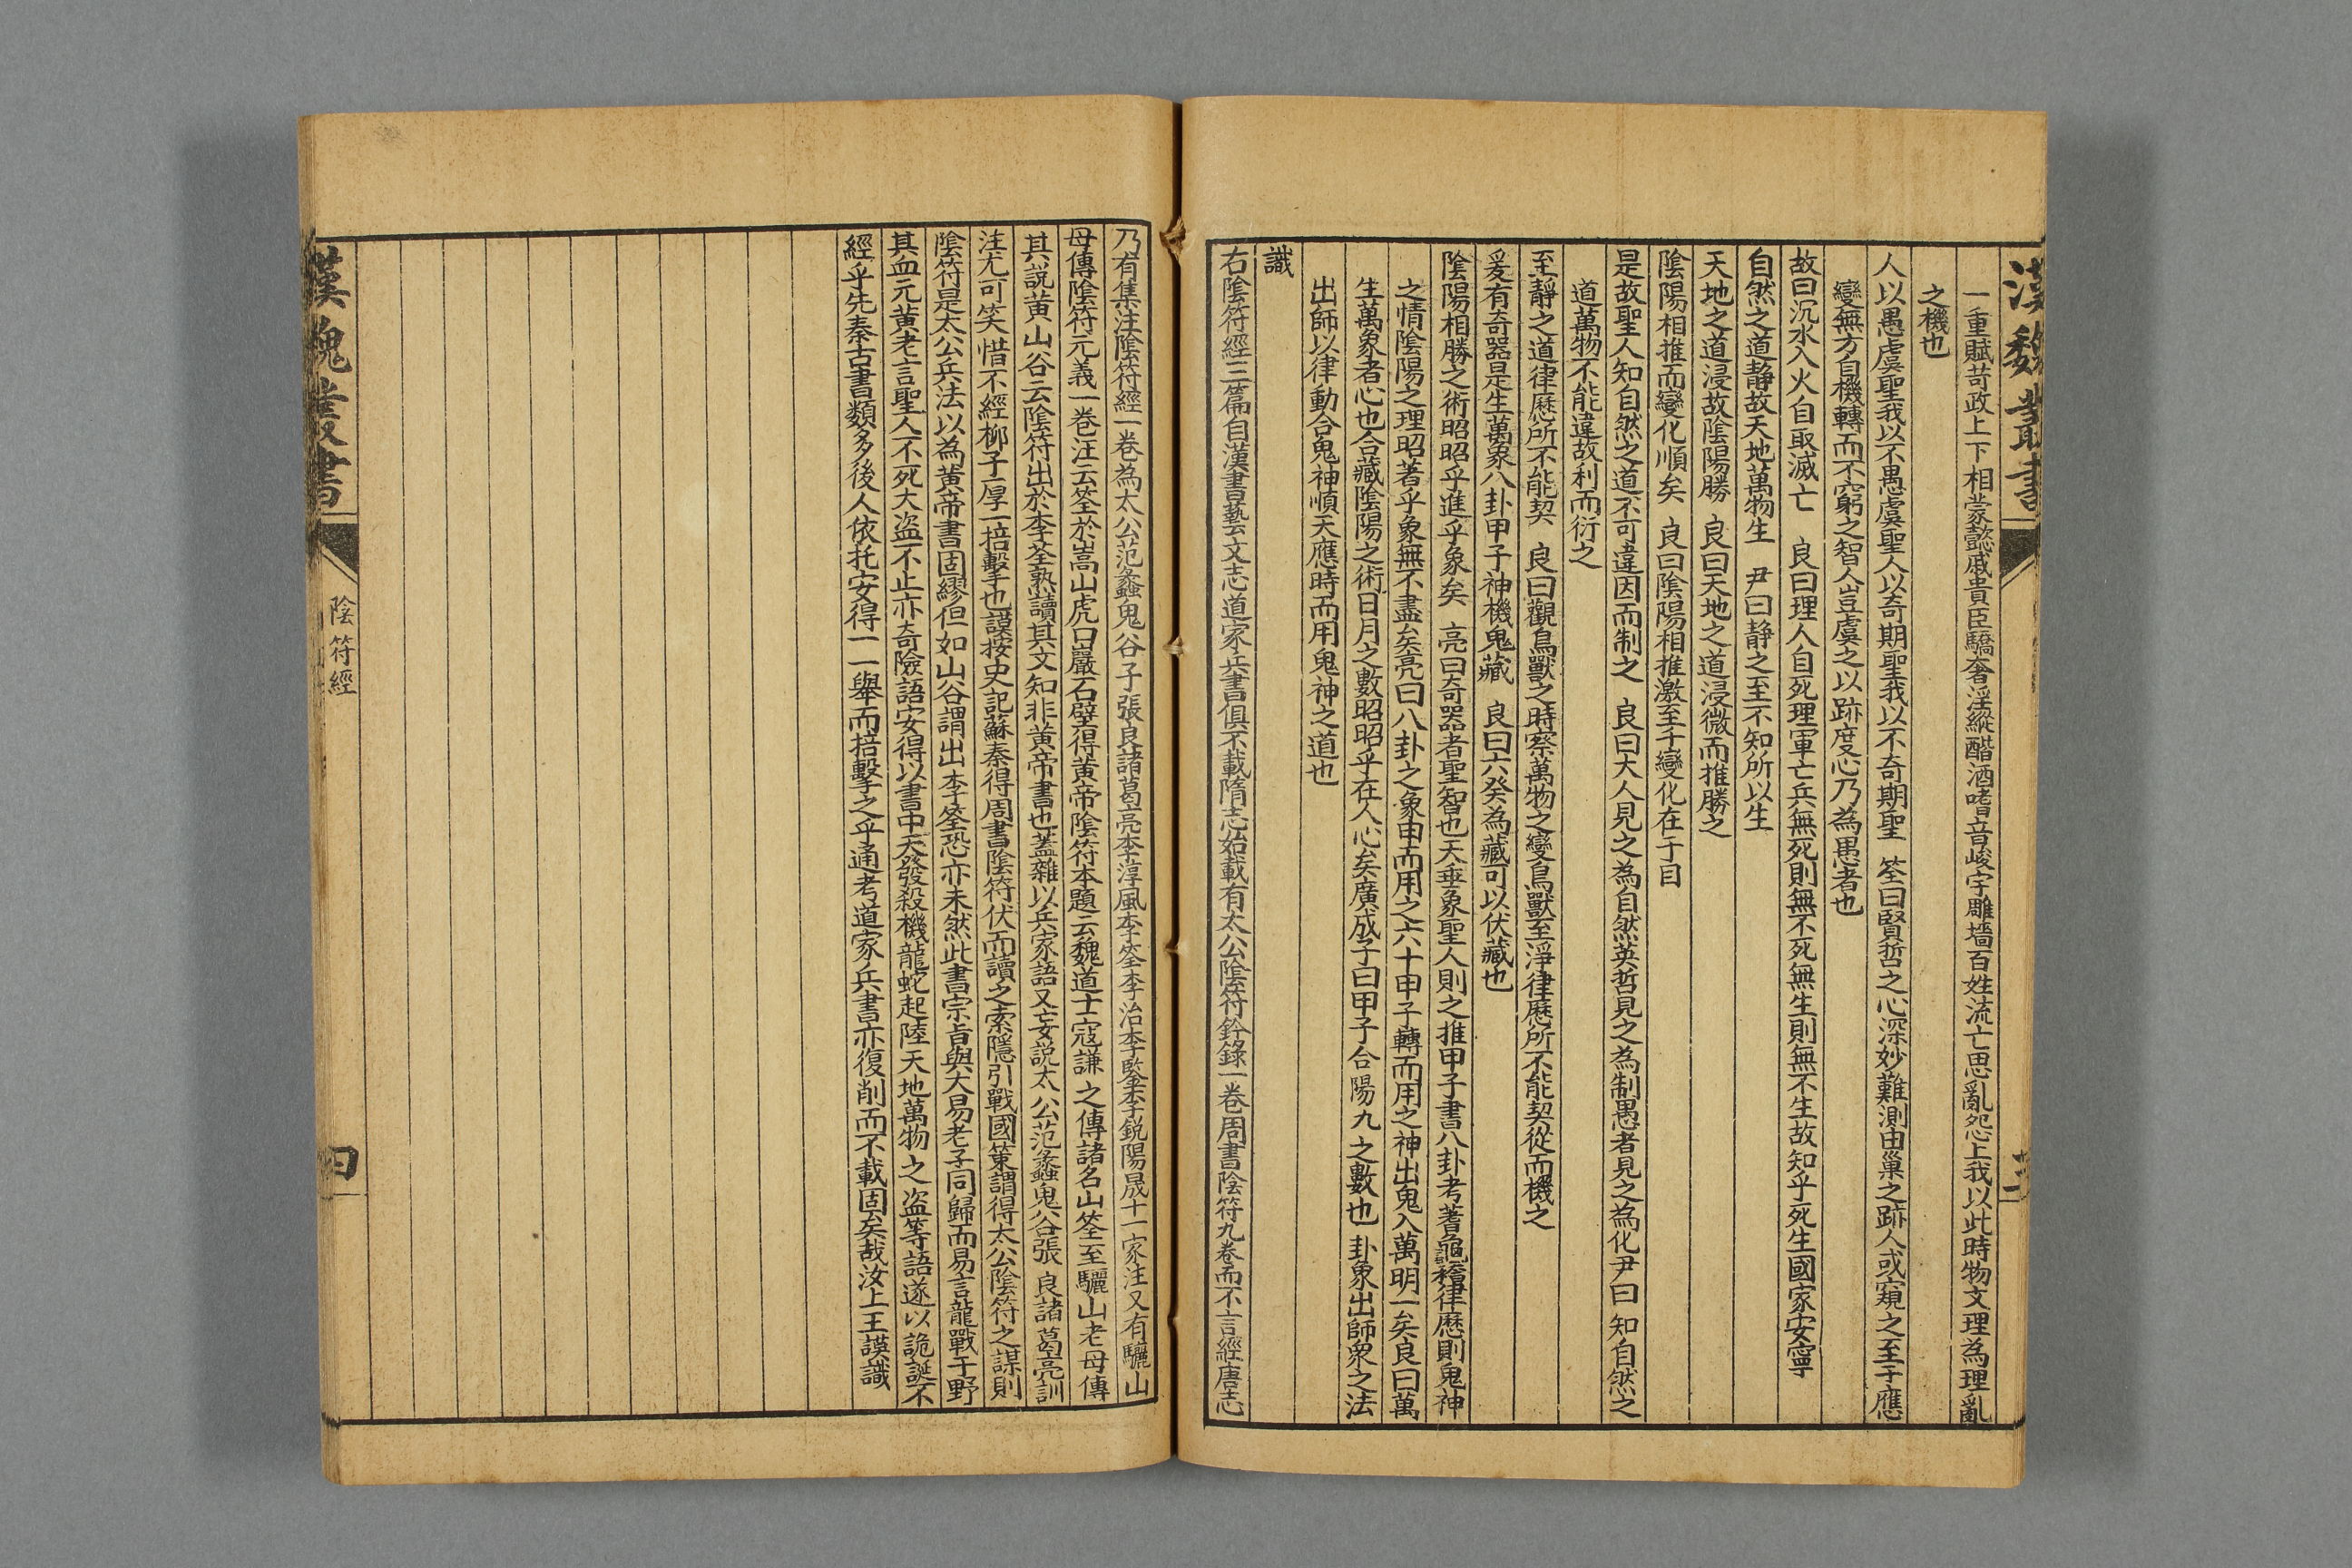 漢魏叢書
一重賦苛政上下相蒙懿戚貴臣驕奢淫縱酣酒嗜音峻宇雕墻百姓流亡思亂怨上我以此時物文理為理亂
之機也
人以愚虞聖我以不愚虞聖人以奇期聖我以不奇期聖 筌曰賢哲之心深妙難測由巢之跡人或窺之至于應
變無方自機轉而不窮之智人豈虞之以跡度心乃為愚者也
故曰沉水入火自取滅亡 良曰理人自死理軍亡兵無死則無不死無生則無不生故知乎死生國家安寧
自然之道靜故天地萬物生 尹曰靜之至不知所以生
天地之道浸故陰陽勝 良曰天地之道浸微而推勝之
陰陽相推而變化順矣 良曰陰陽相推激至于變化在于目
是故聖人知自然之道不可違因而制之 良曰大人見之為自然英哲見之為制愚者見之為化尹曰 知自然之
道萬物不能違故利而衍之
至靜之道律歷所不能契 良曰觀鳥獸之時察萬物之變鳥獸至淨律歷所不能契從而機之
爰有奇器是生萬象八卦甲子神機鬼藏 良曰六癸為藏可以伏藏也
陰陽相勝之術昭昭乎進乎象矣 亮曰奇器者聖智也天垂象聖人則之推甲子書八卦考蓍龜稽律歷則鬼神
之情陰陽之理昭著乎象無不盡矣亮曰八卦之象申而用之六十甲子轉而用之神出鬼入萬明一矣良曰萬
生萬象者心也合藏陰陽之術日月之數昭昭乎在人心矣廣成子曰甲子合陽九之數也 卦象出師衆之法
出師以律動合鬼神順天應時而用鬼神之道也
識
右陰符經三篇自漢書藝文志道家兵書俱不載隋志始載有太公陰符鈐錄一卷周書陰符九卷而不言經唐志
乃有集注陰符經一卷為太公范蠡鬼谷子張良諸葛亮李淳風李筌李治李鑒李銳陽晟十一家注又有驪山
母傳陰符元義一卷注云筌於嵩山虎口巖石壁得黃帝陰符本題云魏道士寇謙之傳諸名山筌至驪山老母傳
其説黃山谷云陰符出於李荃熟讀其文知非黃帝書也蓋雜以兵家語又妄説太公范蠡鬼谷張良諸葛亮訓
注尤可笑惜不經柳子厚一掊擊也謨按史記蘇秦得周書陰符伏而讀之索隱引戰國策謂得太公陰符之謀則
陰符是太公兵法以為黃帝書固繆但如山谷謂出李筌恐亦未然此書宗旨與大易老子同歸而易言龍戰于野
其血元黃老言聖人不死大盗不止亦奇險語安得以書中天發殺機龍蛇起陸天地萬物之盗等語遂以詭誕不
經乎先秦古書類多後人依托安得一一舉而掊擊之乎通考道家兵書亦復削而不載固矣哉汝上王謨識
漢魏叢書
陰符經
四